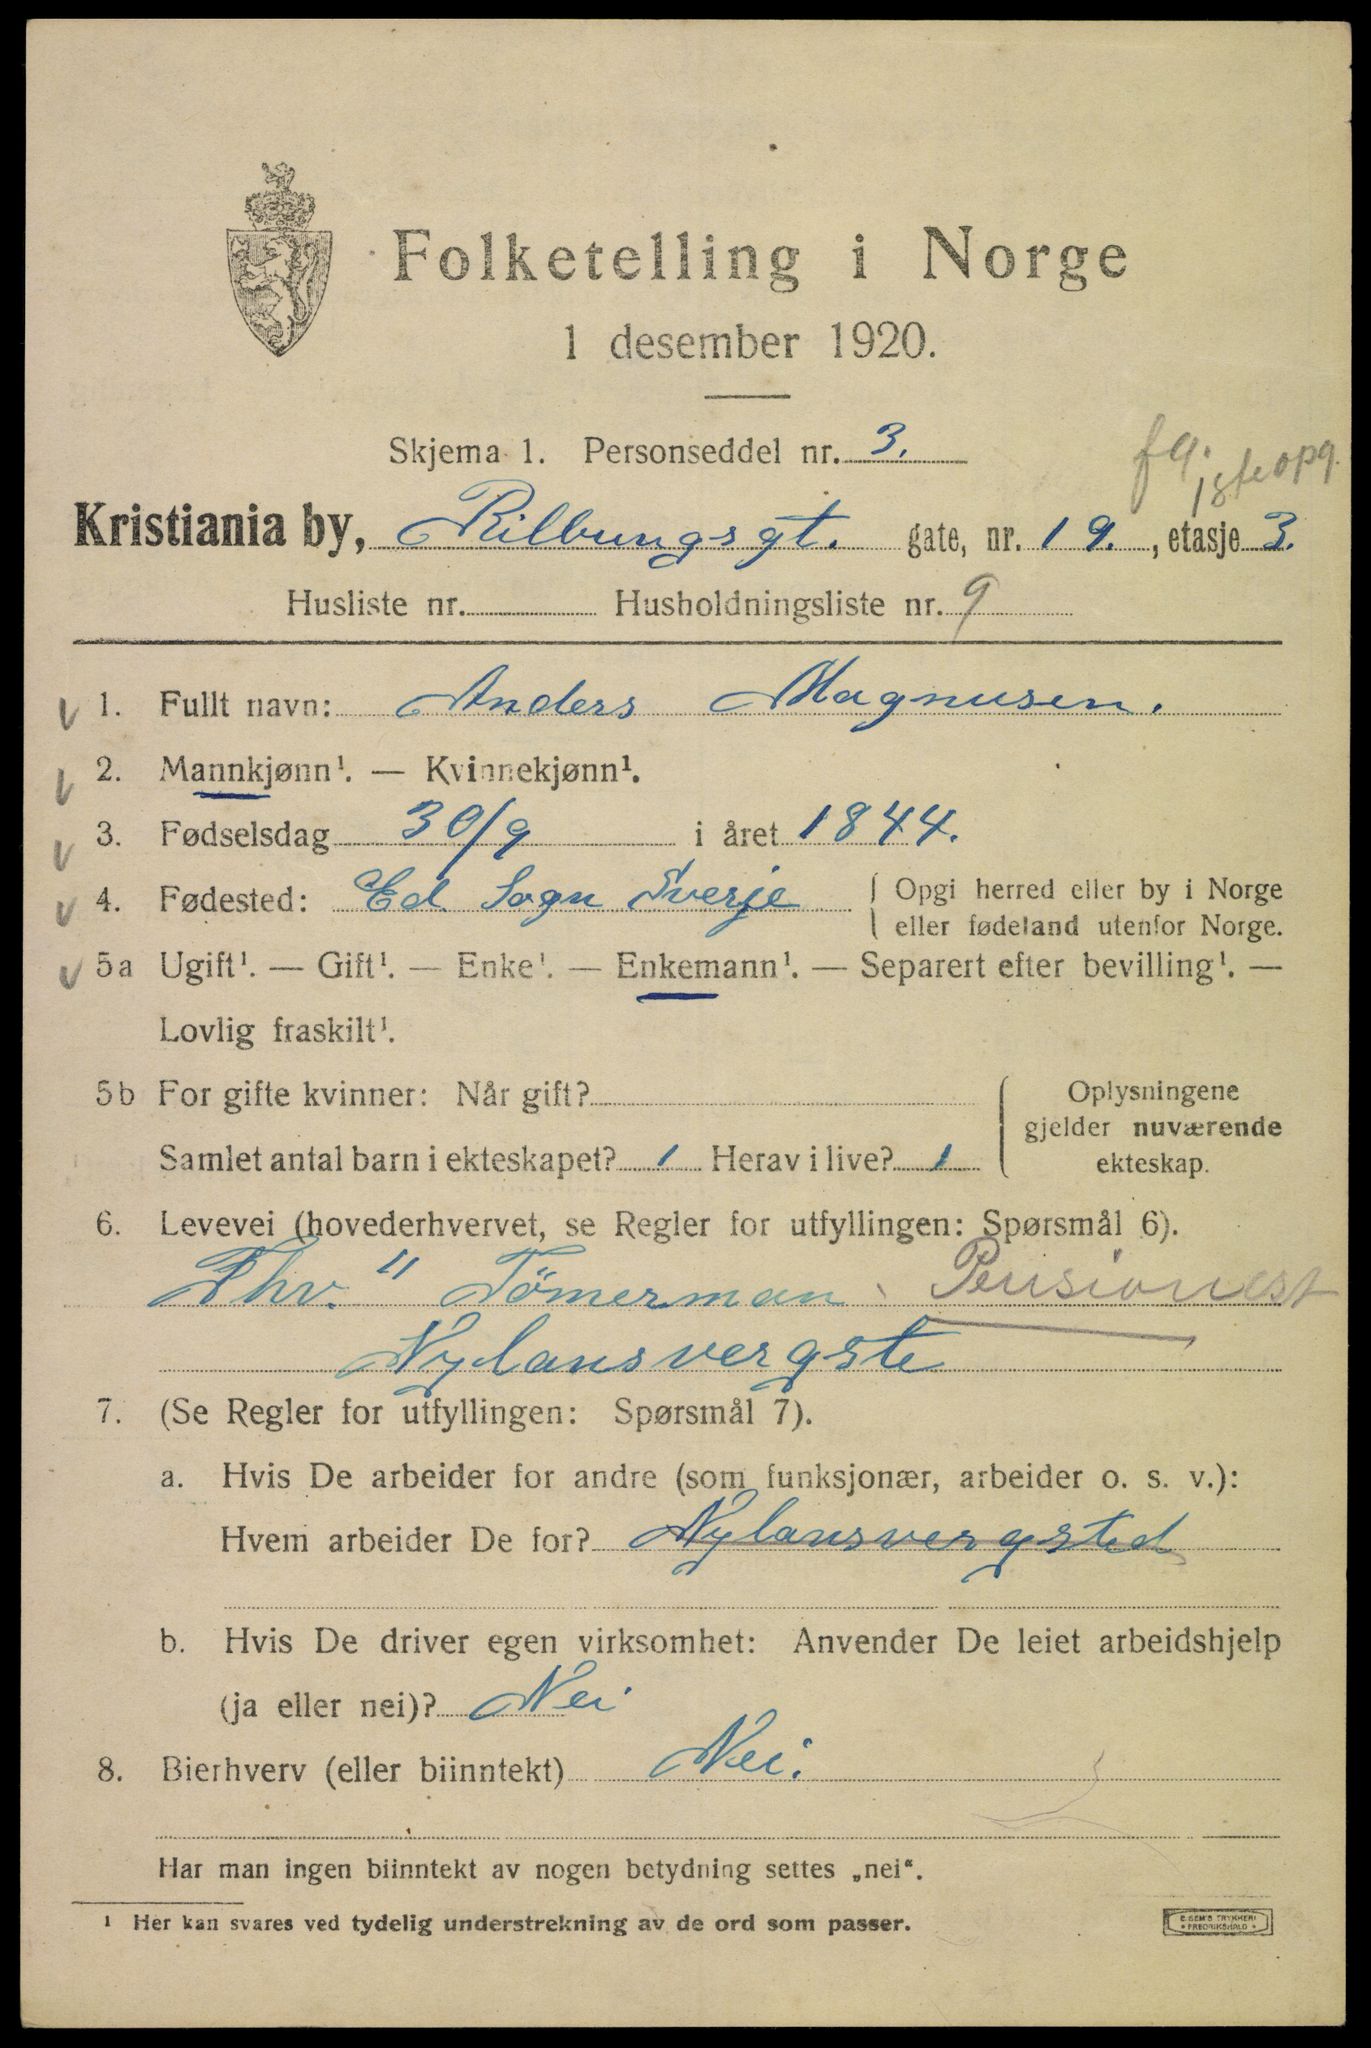 Folketelling i Norge
1 desember 1920.
Skjema 1. Personseddel nr. 3.
Kristiania by, Rilbungsgt. gate, nr. 19., etasje 3.
Husliste nr. Husholdningsliste nr. 9
1. Fullt navn: Anders Magnusen.
2. Mannkjønn¹. — Kvinnekjønn¹.
3. Fødselsdag 30/9 i året 1844.
4. Fødested: Ed Sogn Sverje { Opgi herred eller by i Norge
eller fødeland utenfor Norge.
5a Ugift¹. — Gift¹. — Enke¹. — Enkemann¹. — Separert efter bevilling¹. —
Lovlig fraskilt¹.
5b For gifte kvinner: Når gift?
Oplysningene
gjelder nuværende
ekteskap.
Samlet antal barn i ekteskapet? 1 Herav i live? 1
6. Levevei (hovederhvervet, se Regler for utfyllingen: Spørsmål 6).
Fhv. " Tömerman Pensionist
Nylansvergste
7. (Se Regler for utfyllingen: Spørsmål 7).
a. Hvis De arbeider for andre (som funksjonær, arbeider o. s. v.):
Hvem arbeider De for? Nylansvergsted
b. Hvis De driver egen virksomhet: Anvender De leiet arbeidshjelp
(ja eller nei)? Nei
8. Bierhverv (eller biinntekt) Nei.
Har man ingen biinntekt av nogen betydning settes „nei“.
¹ Her kan svares ved tydelig understrekning av de ord som passer.
E. SEM'S TRYKKERI
FREDRIKSHALD